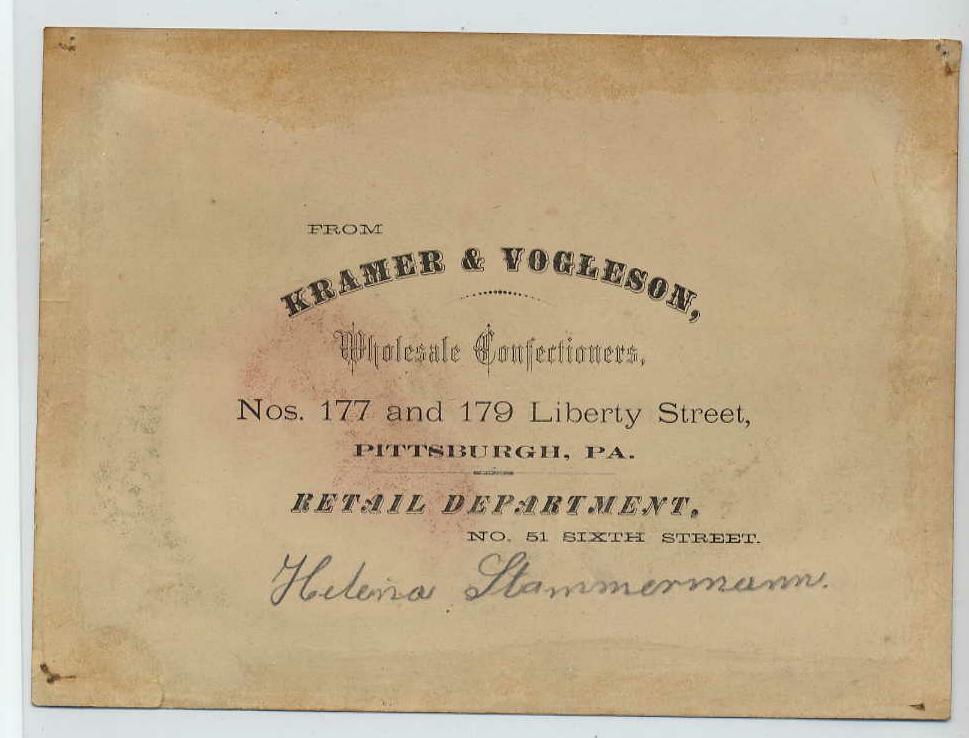 FROM
KRAMER & VOGLESON,
Wholesale Confectioners,
Nos. 177 and 179 Liberty Street,
PITTSBURGH, PA.
RETAIL DEPARTMENT,
NO. 51 SIXTH STREET.
Helena Stammermann.